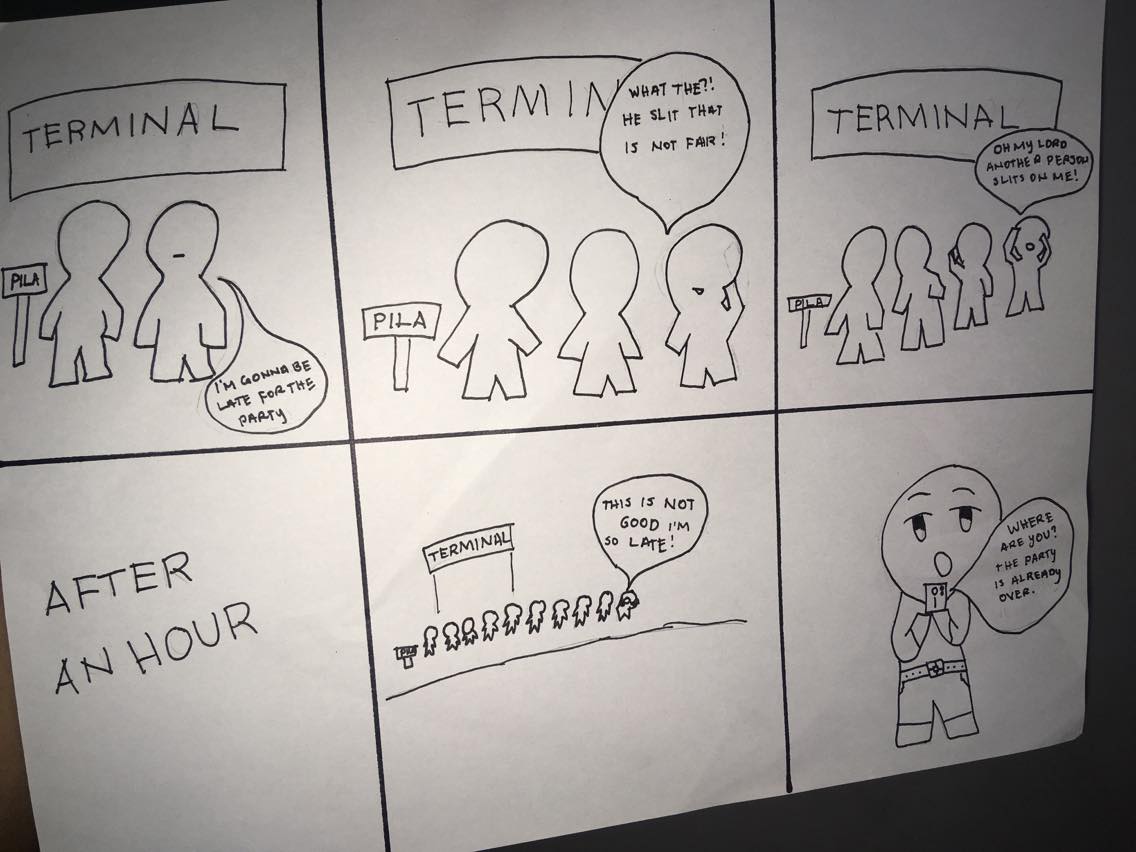 TERMINAL
PILA
I'M GONNA BE
LATE FOR THE
PARTY
TERMIN
WHAT THE?!
HE SLIT THAT
IS NOT FAIR!
PILA
TERMINAL
OH MY LORD
ANOTHER PERSON
SLITS ON ME!
PILA
AFTER
AN HOUR
TERMINAL
THIS IS NOT
GOOD I'M
SO LATE!
PILA
WHERE
ARE YOU?
THE PARTY
IS ALREADY
OVER.